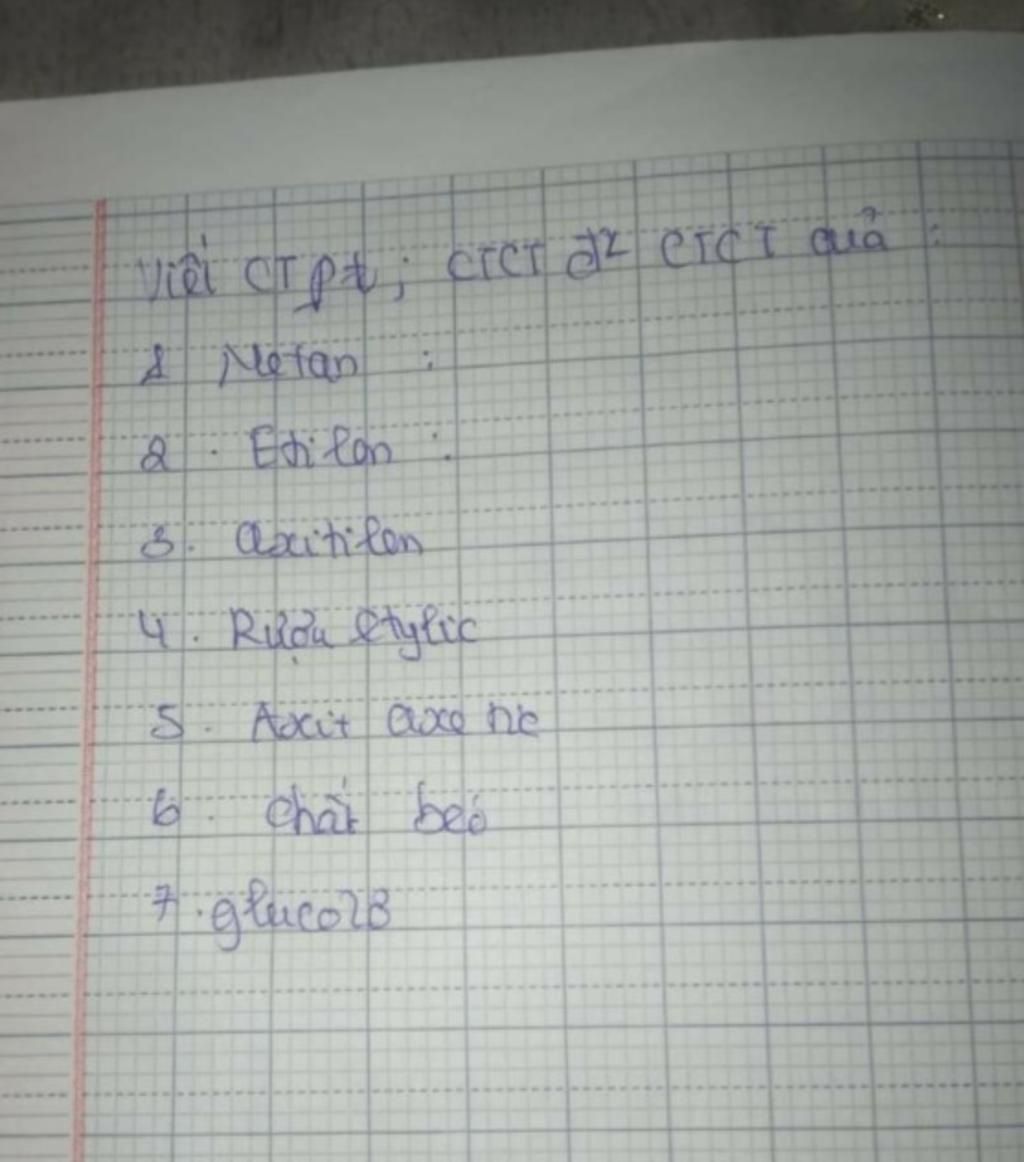 Viết CTpt ; CTCT đ² CTCT quả :
1 Metan :
2 . Etilen :
3. axitilen
4 . Rượu etylic
5 . Axit axe tic
6 . chất beó
7 . glucozơ